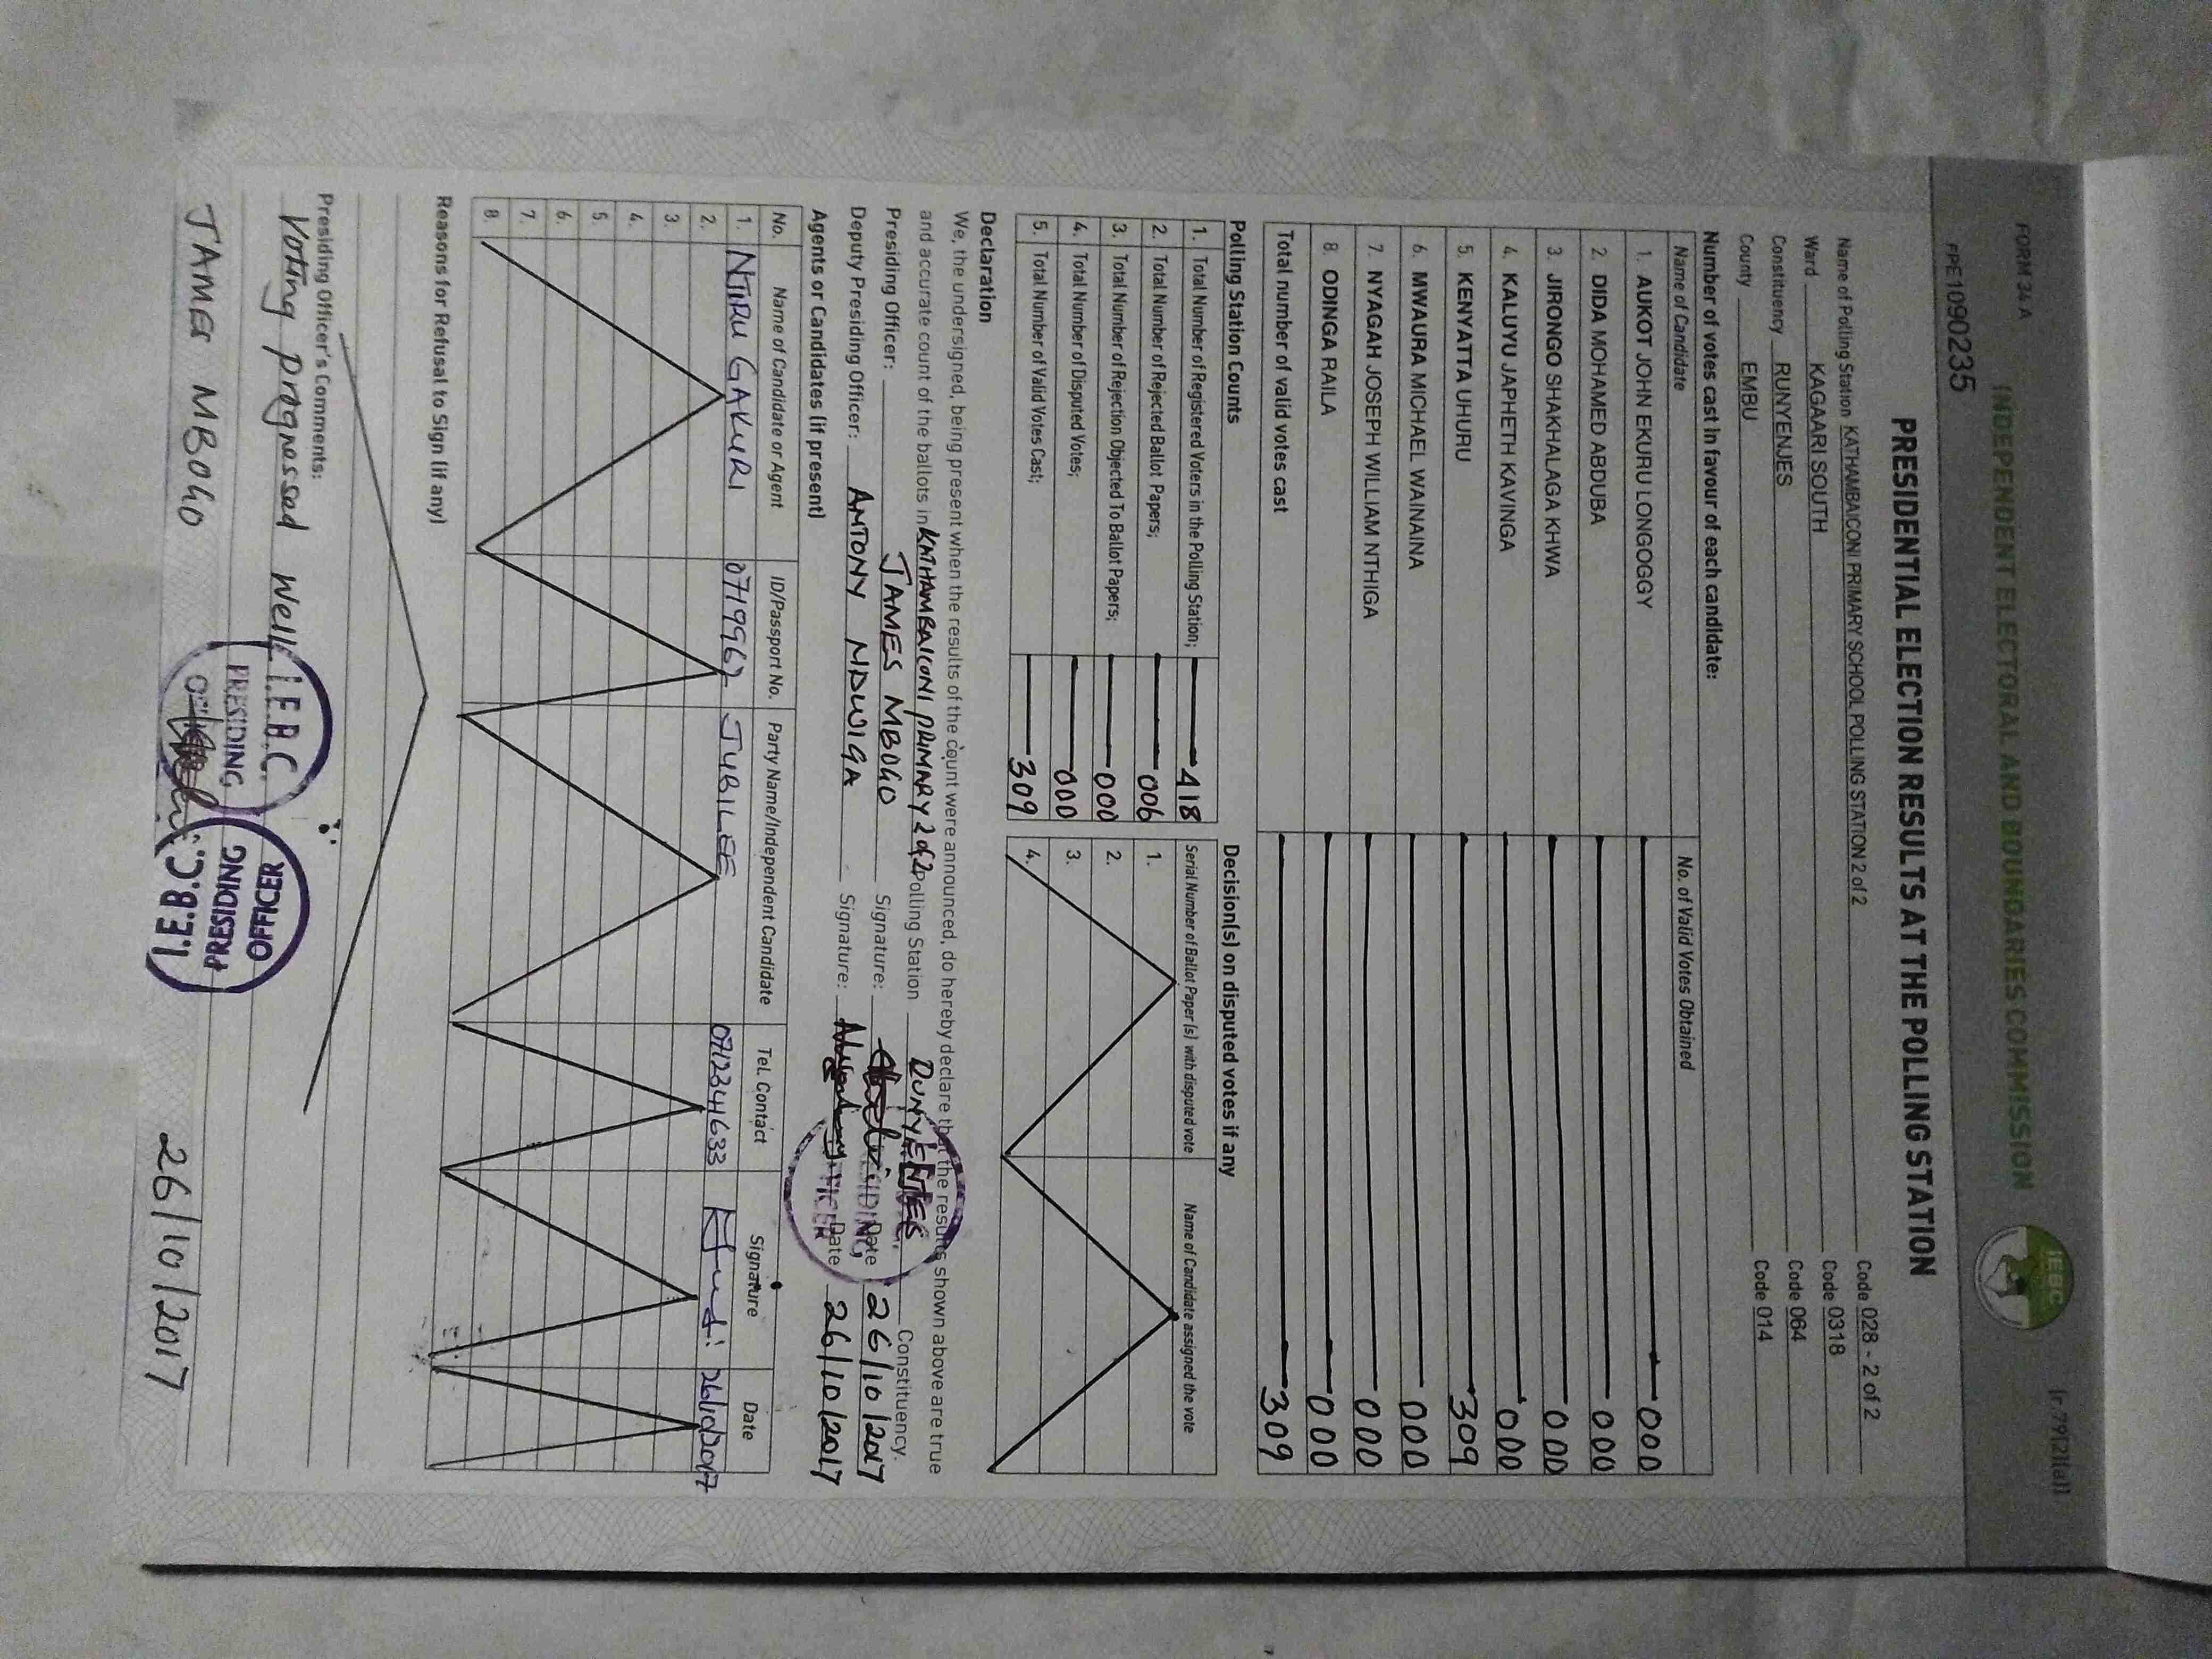 FORM 34 A
[r.79(2)(a)]
INDEPENDENT ELECTORAL AND BOUNDARIES COMMISSION
IEBC
PPE1090235
PRESIDENTIAL ELECTION RESULTS AT THE POLLING STATION
Name of Polling Station KATHAMBAICONI PRIMARY SCHOOL POLLING STATION 2 of 2 Code 028 - 2 of 2
Ward KAGAARI SOUTH Code 0318
Constituency RUNYENJES Code 064
County EMBU Code 014
Number of votes cast in favour of each candidate:
Name of Candidate No. of Valid Votes Obtained
1. AUKOT JOHN EKURU LONGOGGY 000
2. DIDA MOHAMED ABDUBA 000
3. JIRONGO SHAKHALAGA KHWA 000
4. KALUYU JAPHETH KAVINGA 000
5. KENYATTA UHURU 309
6. MWAURA MICHAEL WAINAINA 000
7. NYAGAH JOSEPH WILLIAM NTHIGA 000
8. ODINGA RAILA 000
Total number of valid votes cast 309
Polling Station Counts
1. Total Number of Registered Voters in the Polling Station; 418
2. Total Number of Rejected Ballot Papers; 006
3. Total Number of Rejection Objected To Ballot Papers; 000
4. Total Number of Disputed Votes; 000
5. Total Number of Valid Votes Cast; 309
Decision(s) on disputed votes if any
Serial Number of Ballot Paper (s) with disputed vote Name of Candidate assigned the vote
1.
2.
3.
4.
Declaration
We, the undersigned, being present when the results of the count were announced, do hereby declare that the results shown above are true
and accurate count of the ballots in KATHAMBAICONI PRIMARY 2 of 2 Polling Station RUNYENJES Constituency.
Presiding Officer: JAMES MBOGO Signature: Date 26/10/2017
Deputy Presiding Officer: ANTONY NDWIGA Signature: Date 26/10/2017
PRESIDING
OFFICER
Agents or Candidates (if present)
No. Name of Candidate or Agent ID/Passport No. Party Name/Independent Candidate Tel. Contact Signature Date
1. NTIRU GAKURI 0719962 JUBILEE 0712341633 26/10/2017
2.
3.
4.
5.
6.
7.
8.
Reasons for Refusal to Sign (if any)
Presiding Officer's Comments:
Voting progressed well
JAMES MBOGO 26/10/2017
I.E.B.C.
PRESIDING
OFFICER
PRESIDING
I.E.B.C.